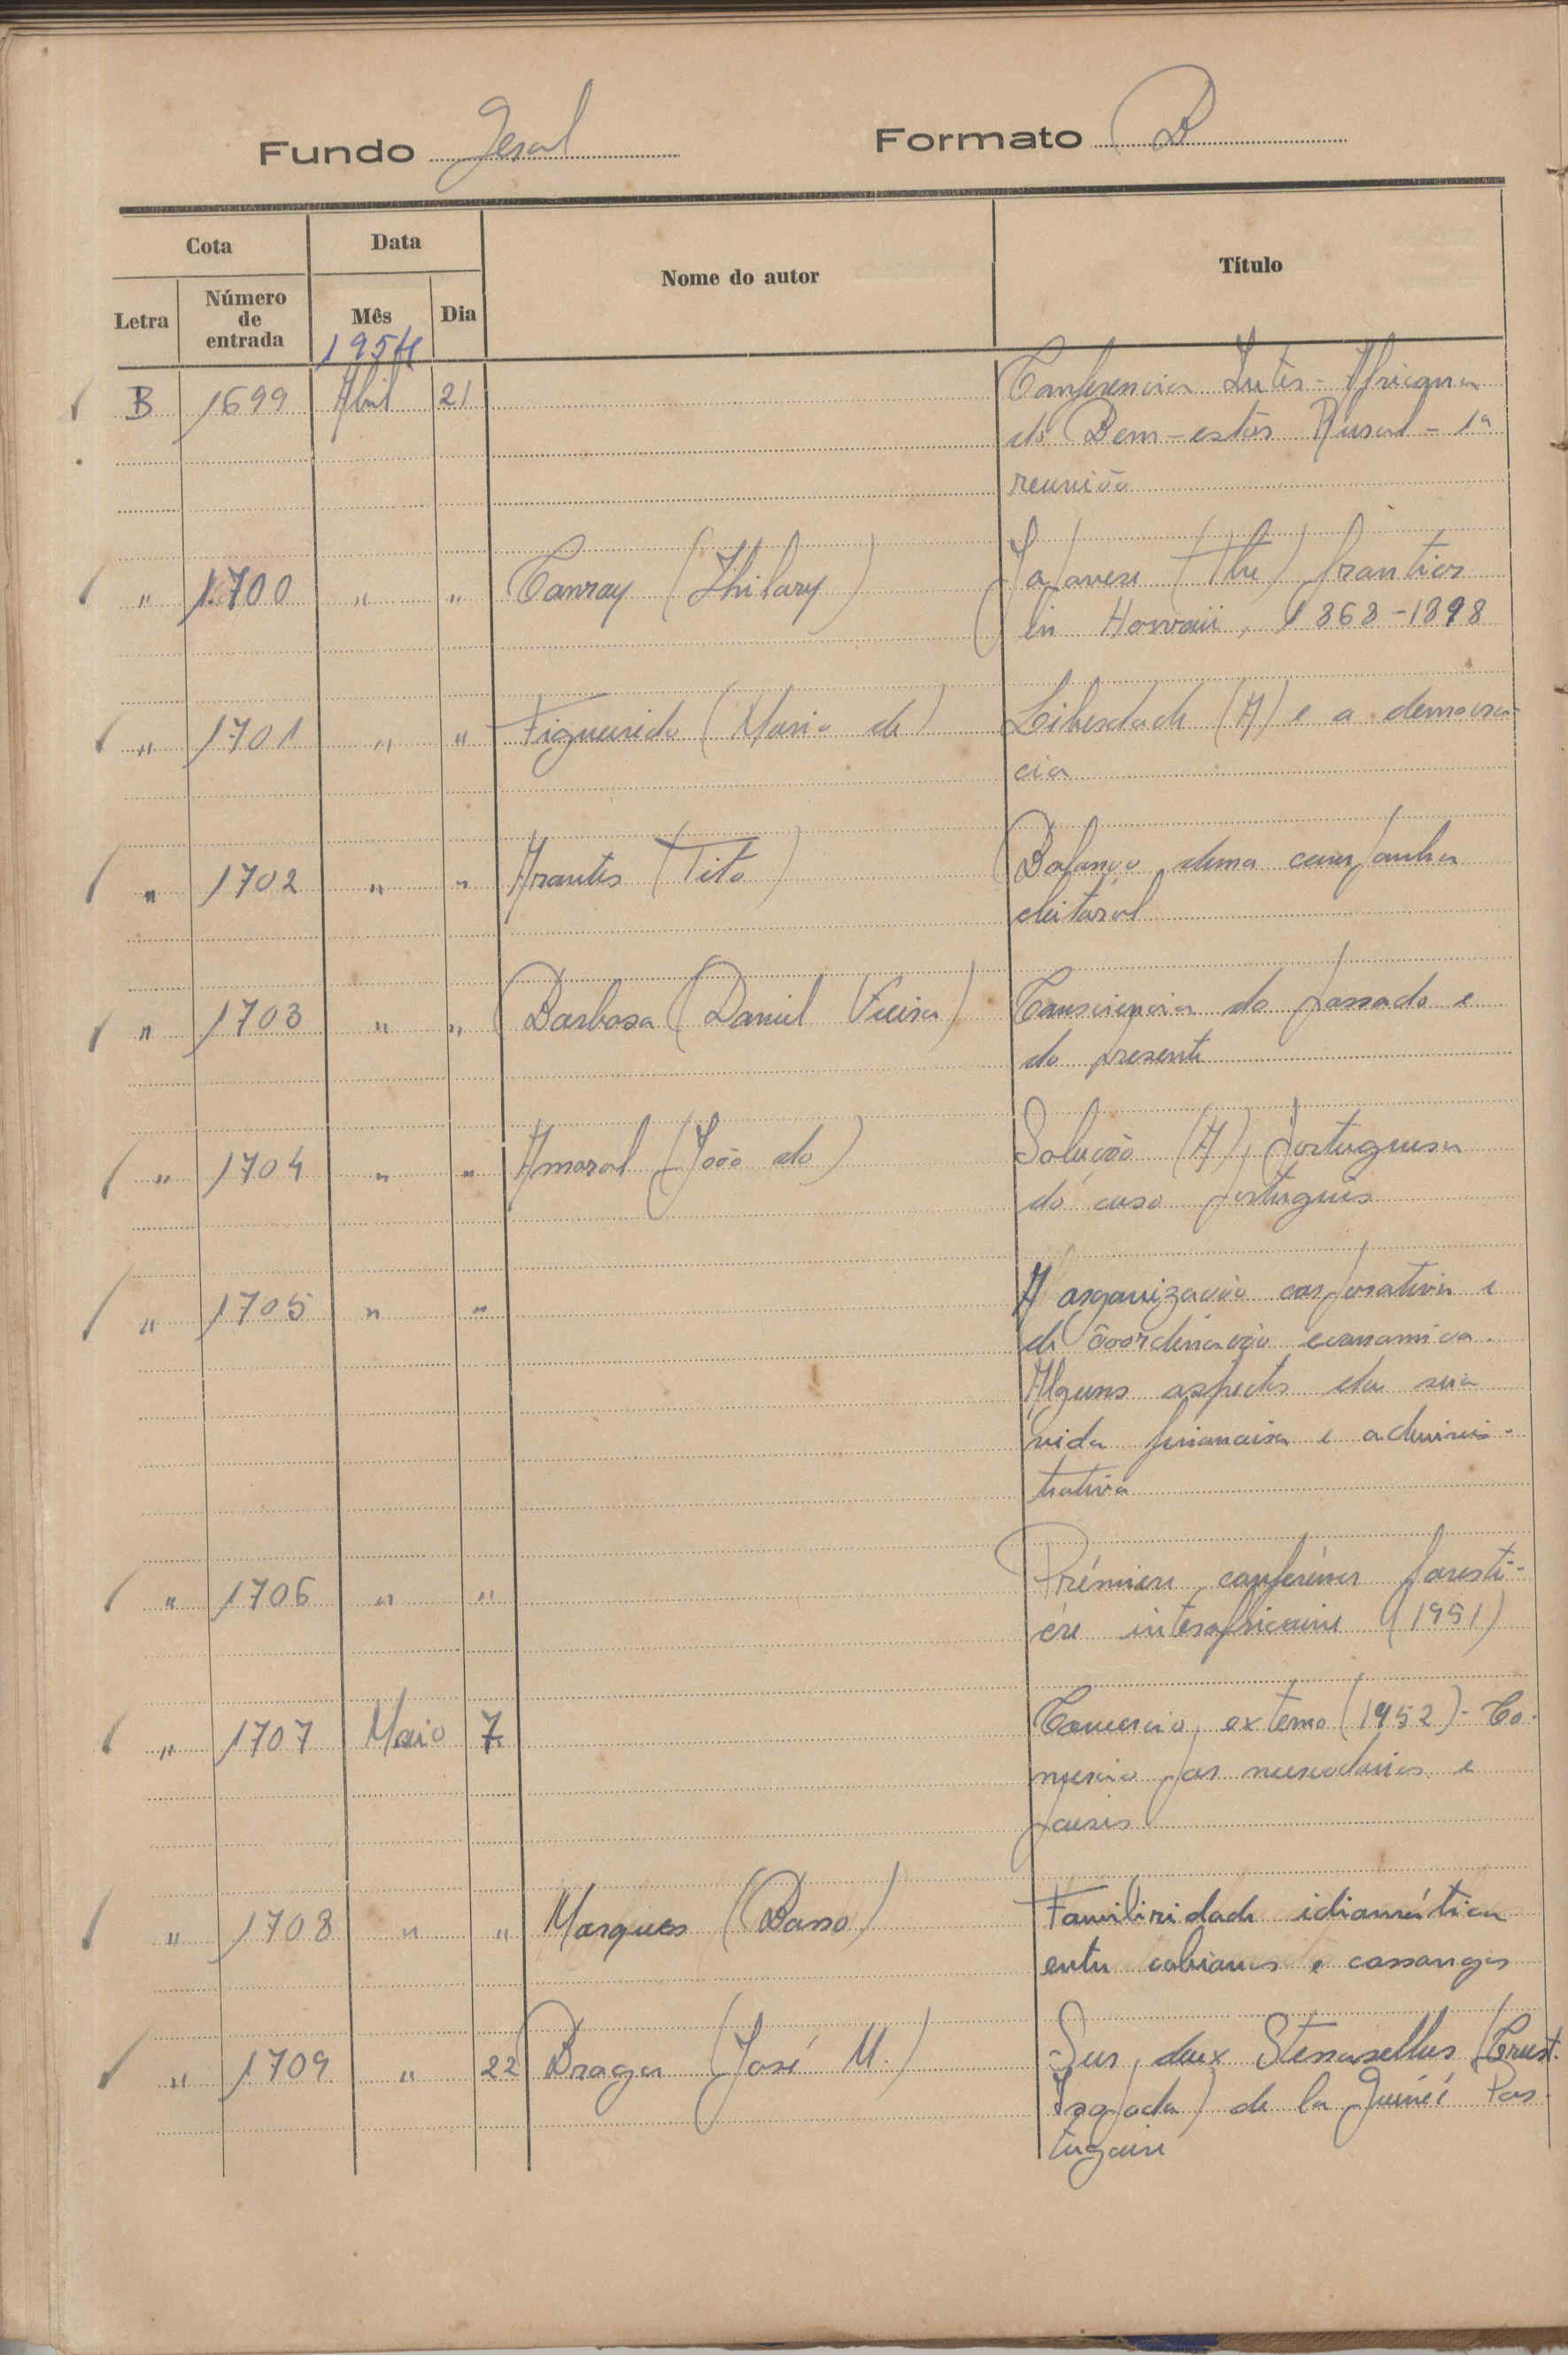 Fundo Geral Formato B
Cota Data Nome do autor Título
Letra Número de entrada Mês Dia
1954
B 1699 Abril 21 Conferencia Inter-Africana
do Bem-estar Rural - 1ª
reunião
" 1.700 " " Conray (Hhilary) Japanese (The) frontier
in Hawaii, 1868-1898
" 1701 " " Figueiredo (Mario de) Liberdade (A) e a democra-
cia
" 1702 " " Arantes (Tito) Balanço duma campanha
eleitoral
" 1703 " " Barbosa (Daniel Vieira) Consciencia do passado e
do presente
" 1704 " " Amaral (João do) Solução (A) portuguesa
do caso português
" 1705 " " A organização corporativa e
de coordenação economica.
Alguns aspectos da sua
vida financeira e adminis-
trativa
" 1706 " " Prémiere conférence foresti-
ére interafricaine (1951)
" 1707 Maio 7 Comercio externo (1952) - Co-
mercio por mercadorias e
paises
" 1708 " " Marques (Basso) Familiridade idiomática
entre cobianas e cassangas
" 1709 " 22 Braga (José M.) Sur deux Stenasellus (Crust.
Isopoda) de la Guinéé Por-
tugaise